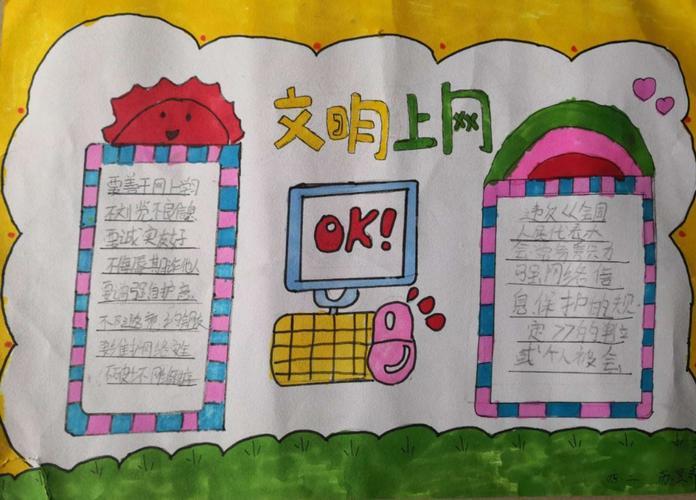 文明上网
要善于网上学习
不浏览不良信息
要诚实友好
不侮辱欺诈他人
要增强自护意
不随意约会网友
要维护网络安全
不破坏网络秩序
OK!
违反《全国
人民代表大
会常务委员
加强网络信
息保护的规
定》的单位
或个人被会